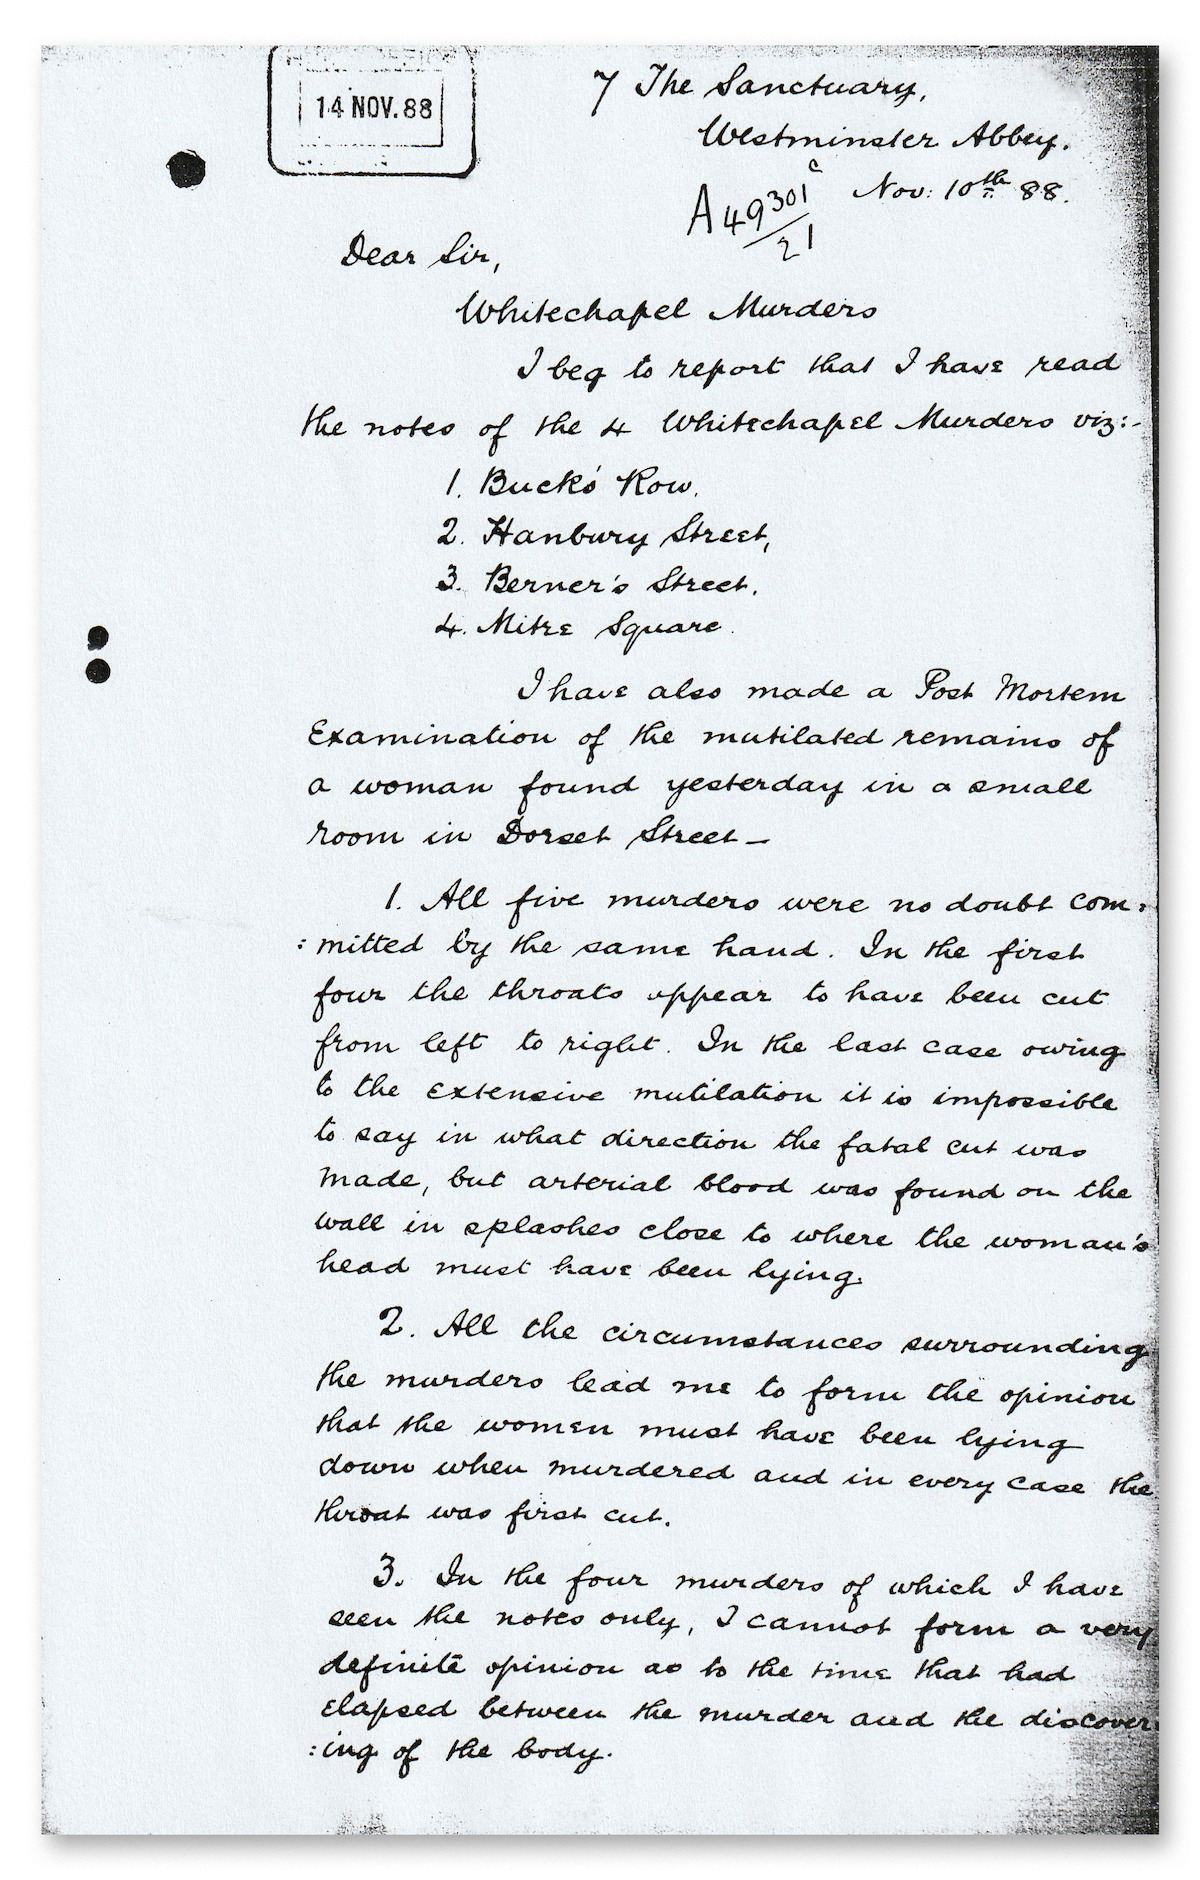 14 NOV. 88
7 The Sanctuary,
Westminster Abbey.
Nov: 10th 88.
A49301c
21
Dear Sir,
Whitechapel Murders
I beg to report that I have read
the notes of the 4 Whitechapel Murders viz:-
1. Buck's Row.
2. Hanbury Street,
3. Berner's Street.
4. Mitre Square.
I have also made a Post Mortem
Examination of the mutilated remains of
a woman found yesterday in a small
room in Dorset Street –
1. All five murders were no doubt com:
:mitted by the same hand. In the first
four the throats appear to have been cut
from left to right. In the last case owing
to the extensive mutilation it is impossible
to say in what direction the fatal cut was
made, but arterial blood was found on the
wall in splashes close to where the woman's
head must have been lying.
2. All the circumstances surrounding
the murders lead me to form the opinion
that the women must have been lying
down when murdered and in every case the
throat was first cut.
3. In the four murders of which I have
seen the notes only, I cannot form a very
definite opinion as to the time that had
elapsed between the murder and the discover:
:ing of the body.